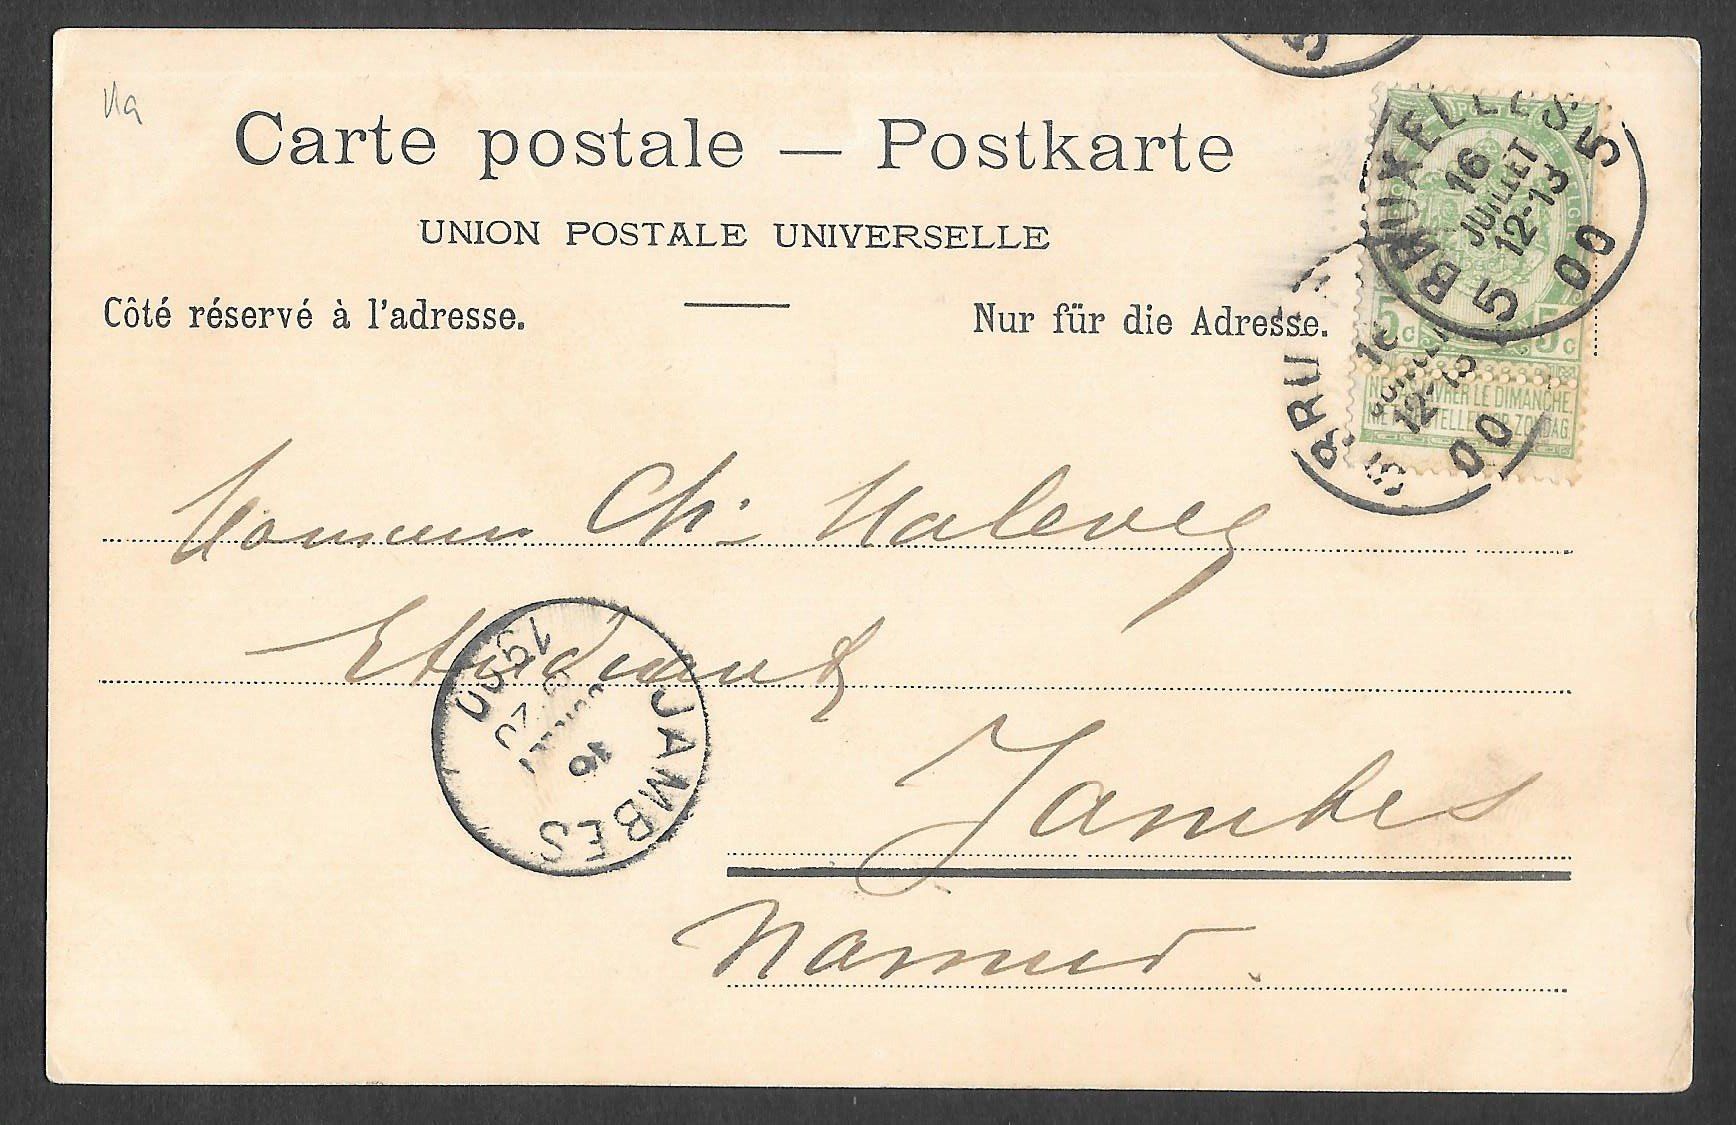 Carte postale — Postkarte
UNION POSTALE UNIVERSELLE
Côté réservé à l'adresse.
Nur für die Adresse.
5 BRUXELLES 5
16
JUILLET
12-13
00
5c 5c
NE PAS LIVRER LE DIMANCHE
NIET BESTELLEN OP ZONDAG
5 BRU
16
12-13
00
Monsieur Ch. Malevez
Etudiant
Jambes
Namur.
JAMBES
16
1900